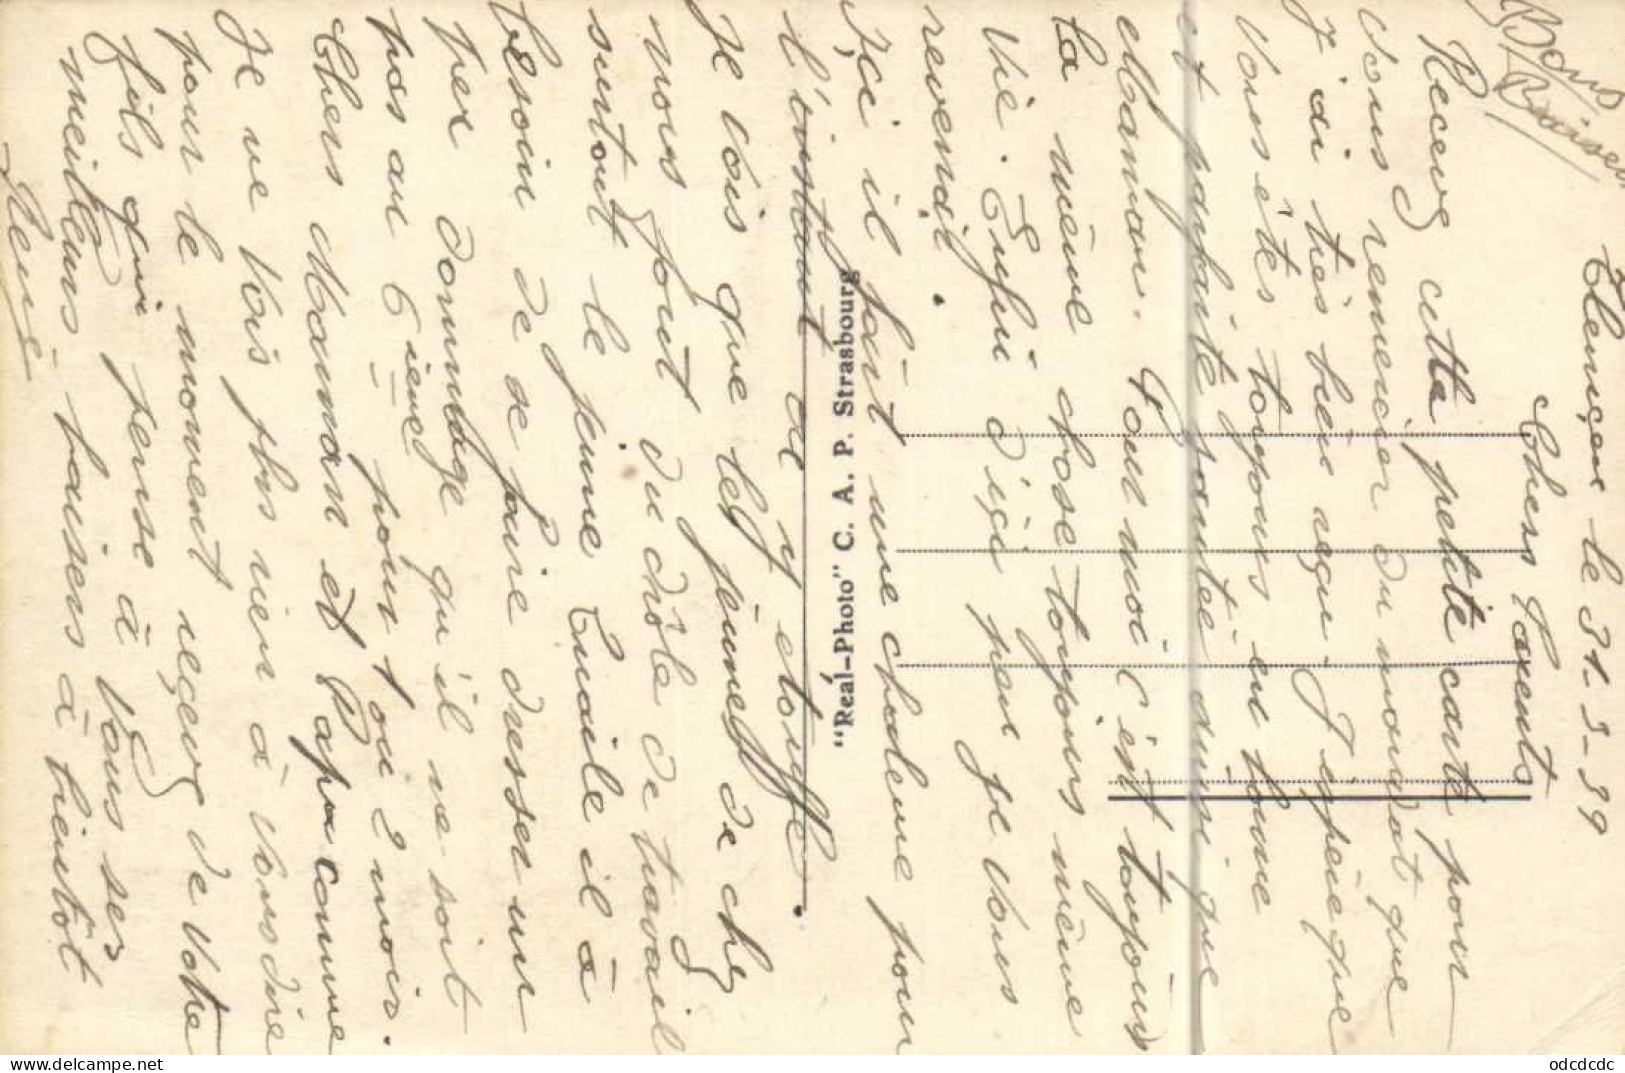 Bons
Baisers
le 31-5-39
Chers Parents
Recevez cette petite carte pour
vous remercier du mandat que
j'ai très bien reçu. J'espère que
vous êtes toujours en bonne
et parfaite santé ainsi que
Maman. Pour moi c'est toujours
la même chose toujours même
vie. Enfin d'ici peu je vous
reverrai.
Içi il fait une chaleur pour
l'instant on y étouffe
Je vois que les jeunes de chez
nous font du drôle de travail
surtout le jeune Emile il à
besoin de se faire dresser un
peu dommage qu'il ne soit
pas au 6ième pour 1 ou 2 mois.
Chers Maman et Papa comme
Je ne vois plus rien à vous dire
pour le moment reçevez de votre
fils qui pense à vous ses
meilleurs baisers à bientôt
René
"Real-Photo" C. A. P. Strasbourg
www.delcampe.net
odcdcdc